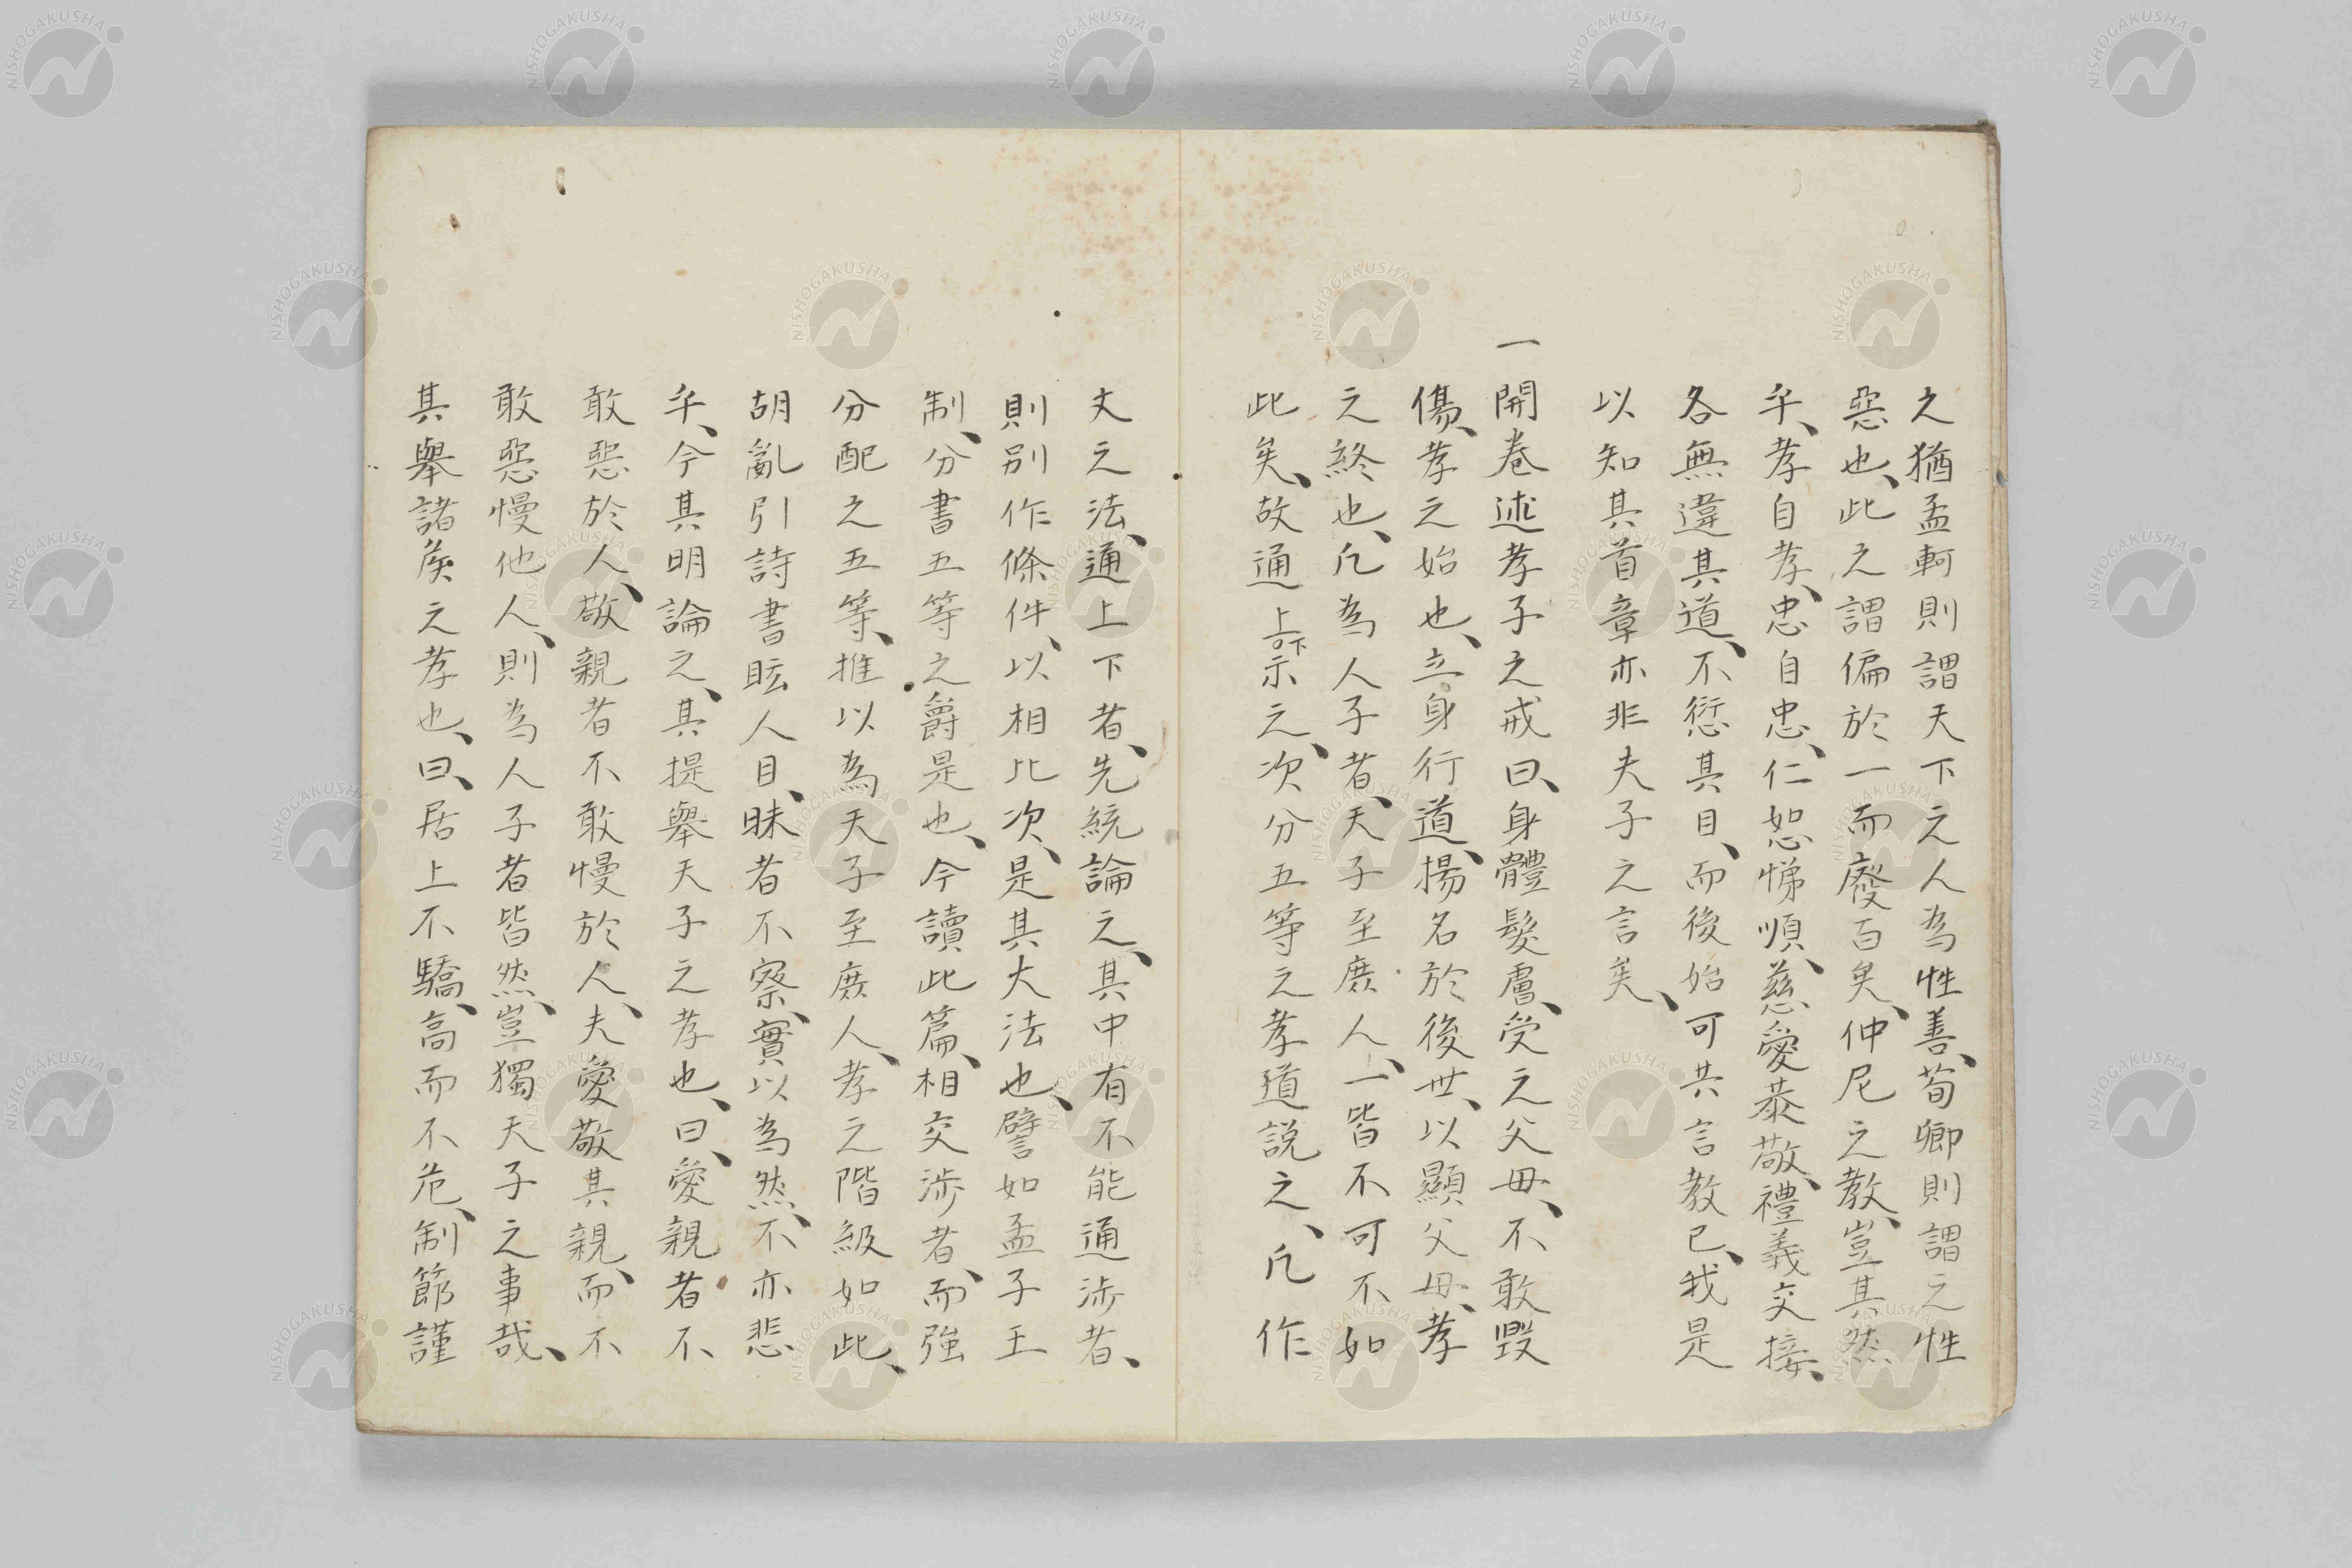 之猶孟軻則謂天下之人為性善、荀卿則謂之性
惡也、此之謂偏於一而廢百矣、仲尼之教、豈其然
乎、孝自孝、忠自忠、仁恕悌順、慈愛恭敬、禮義交接、
各無違其道、不愆其目、而後始可共言教已、我是
以知其首章亦非夫子之言矣、
一開卷述孝子之戒曰、身體髮膚、受之父母、不敢毀
傷、孝之始也、立身行道、揚名於後世、以顯父母、孝
之終也、凡為人子者、天子至庶人、一皆不可不如
此矣、故通上下示之、次分五等之孝道説之、凡作
文之法、通上下者、先統論之、其中有不能通渉者、
則別作條件、以相比次、是其大法也、譬如孟子王
制、分書五等之爵是也、今讀此篇、相交渉者、而強
分配之五等、推以為天子至庶人、孝之階級如此、
胡亂引詩書眩人目、昧者不察、實以為然、不亦悲
乎、今其明論之、其提擧天子之孝也、曰、愛親者不
敢惡於人、敬親者不敢慢於人、夫愛敬其親、而不
敢惡慢他人、則為人子者皆然、豈獨天子之事哉、
其擧諸侯之孝也、曰、居上不驕、高而不危、制節謹